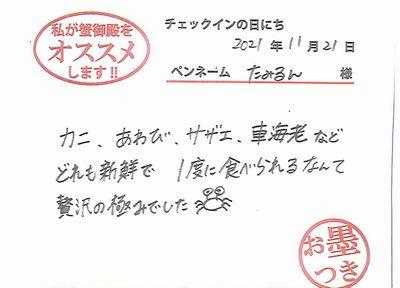 私が蟹御殿を
オススメ
します!!
チェックインの日にち
2021年11月21日
ペンネーム たみるん 様
カニ、あわび、サザエ、車海老など
どれも新鮮で 1度に食べられるなんて
贅沢の極みでした
お墨
つき